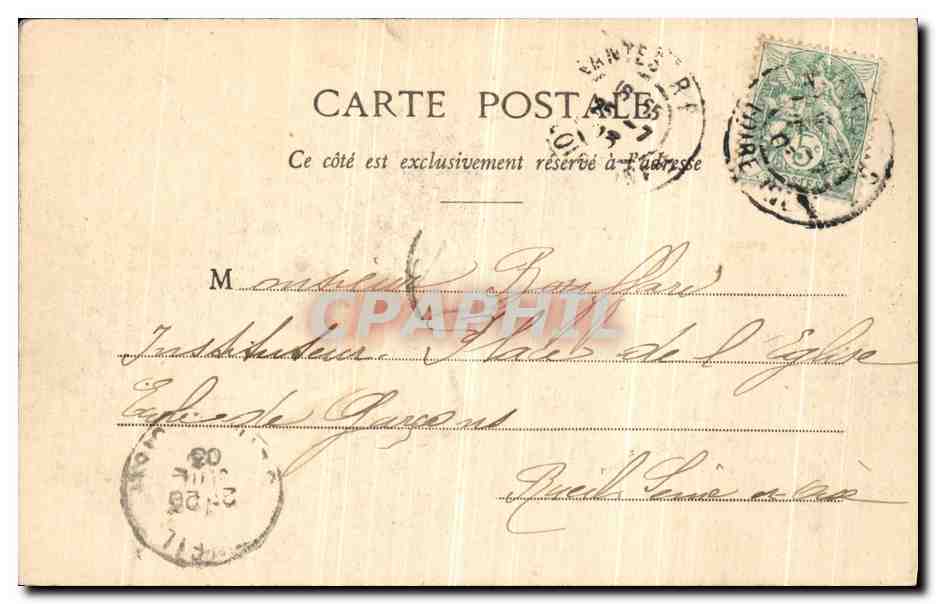 CARTE POSTALE
Ce côté est exclusivement réservé à l'adresse
Monsieur
CPAPHIL
Instituteur. Place de l'Eglise
Ecole de Garçons
Rueil Seine et Oise
NANTES
25
LOIRE
5c
03
26
RUEIL